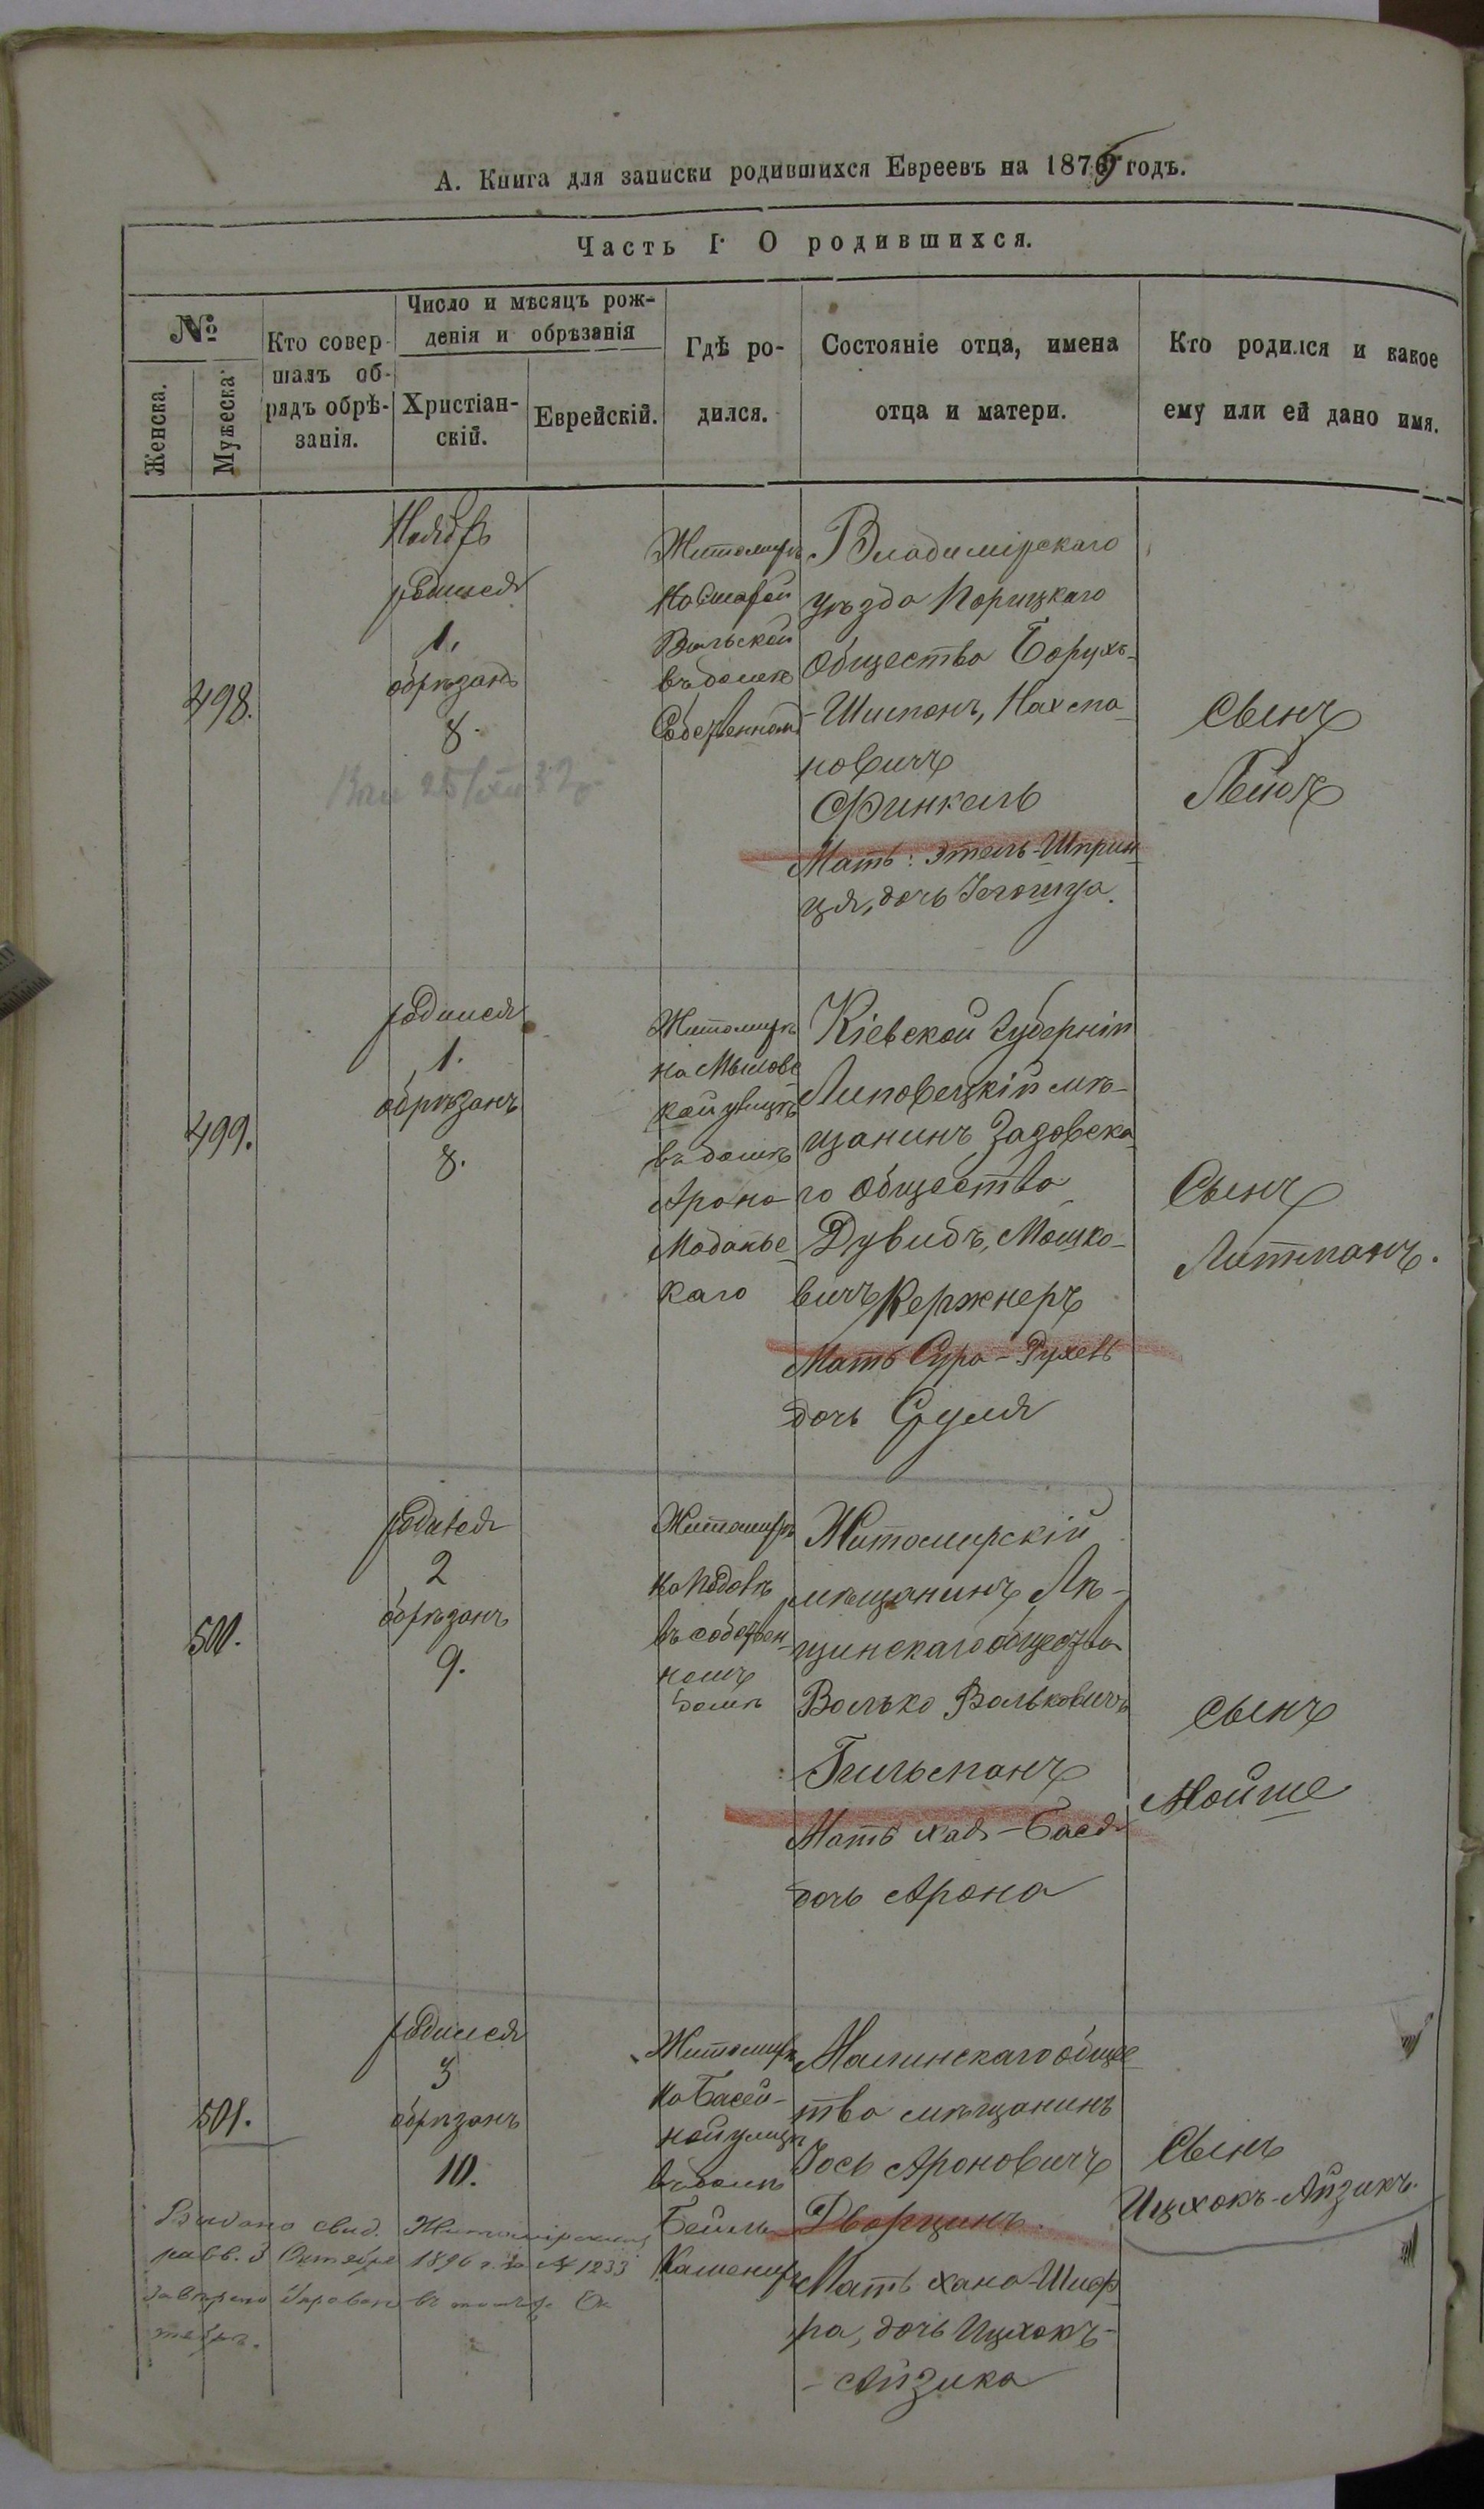 А. Книга для записки родившихся Евреевъ на 1876 годъ.
Часть I. О родившихся.
№
Женска.
Мужеска
Кто совер-
шалъ об-
рядъ обрѣ-
занія.
Число и мѣсяцъ рож-
денія и обрѣзанія
Христіан-
скій.
Еврейскій.
Гдѣ ро-
дился.
Состояніе отца, имена
отца и матери.
Кто родился и какое
ему или ей дано имя.
498.
Ноябрь
родился
1.
обрѣзанъ
8.
Житомирѣ
На Старой
Вильской
въ домѣ
Собственномъ
Владимірскаго
уѣзда Порицкаго
общества Борухъ-
-Шимонъ, Нахма-
новичъ
Финкель
Мать: Этель-Шприн
ця, дочь
Сынъ
Лейб
499.
родился
1.
обрѣзанъ
8.
Житомирѣ
на Миловс
кой улицѣ
въ домѣ
Арона
каго
Кіевской Губерніи
Липовецкій мѣ-
щанинъ Зозовска
го общества
Дувидъ, Мошко-
вичъ Кержнеръ
Мать Сура-Рухель
дочь Сруля
Сынъ
Литманъ.
500.
родился
2
обрѣзанъ
9.
Житомирѣ
въ собствен-
номъ
домѣ
Житомирскій
мѣщанинъ Лѣ-
щинскаго общества
Волько Вольковичъ
Гильманъ
Мать Хая-Бася
дочь Арона
Сынъ
Мойше
501.
родился
3
обрѣзанъ
10.
Житомирѣ
на Басей-
ной улицѣ
въ домѣ
Бейлы
Каменир
Малинскаго общес
тва мѣщанинъ
Іось Ароновичъ
Дворцинъ.
Мать Хана-Шиф
ра, дочь Ицхокъ-
-Айзика
Сынъ
Ицхокъ-Айзикъ.
Выдано свид. Житомірскимъ
равв. 3 Октября 1896 г. за № 1233